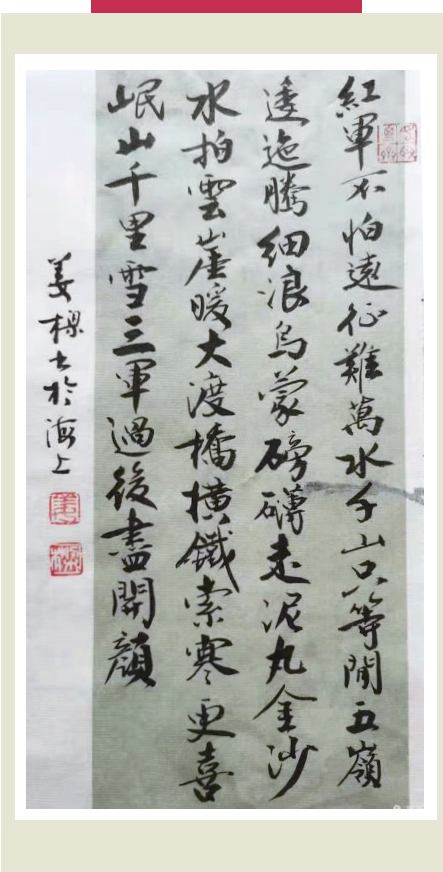 紅軍不怕遠征難萬水千山只等閒五嶺
逶迤騰細浪烏蒙磅礴走泥丸金沙
水拍雲崖暖大渡橋橫鐵索寒更喜
岷山千里雪三軍過後盡開顏
姜书於海上